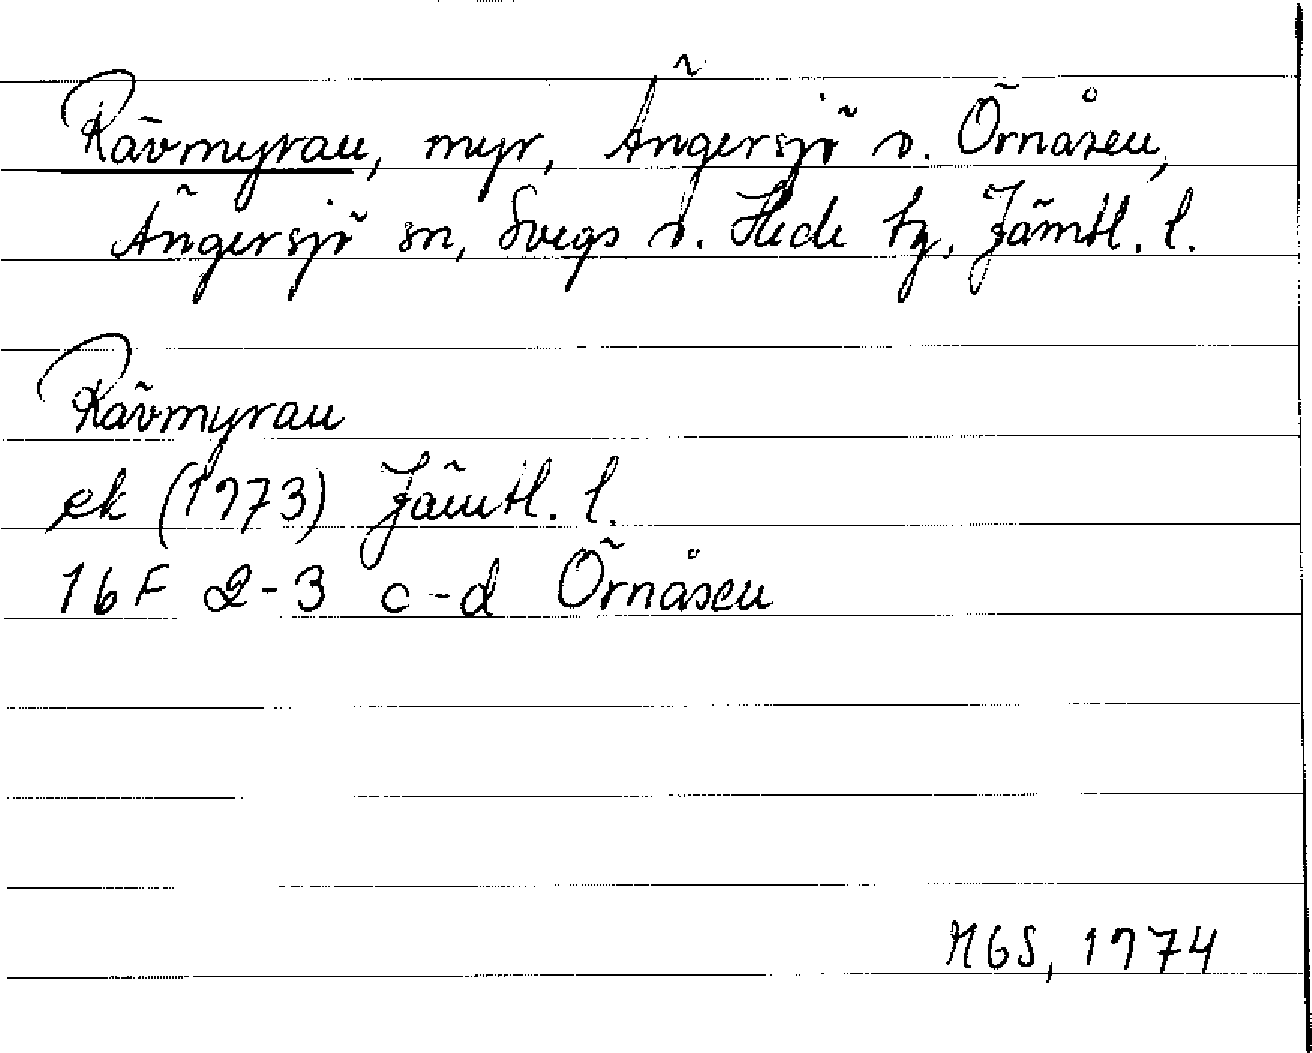 Rävmyran, myr, Ängersjö o. Örnåsen,
Ängersjö sn, Svegs o. Hede tg, Jämtl. l.
Rävmyran
ek (1973) Jämtl. l.
16F 2-3 c-d Örnåsen
MGS, 1974